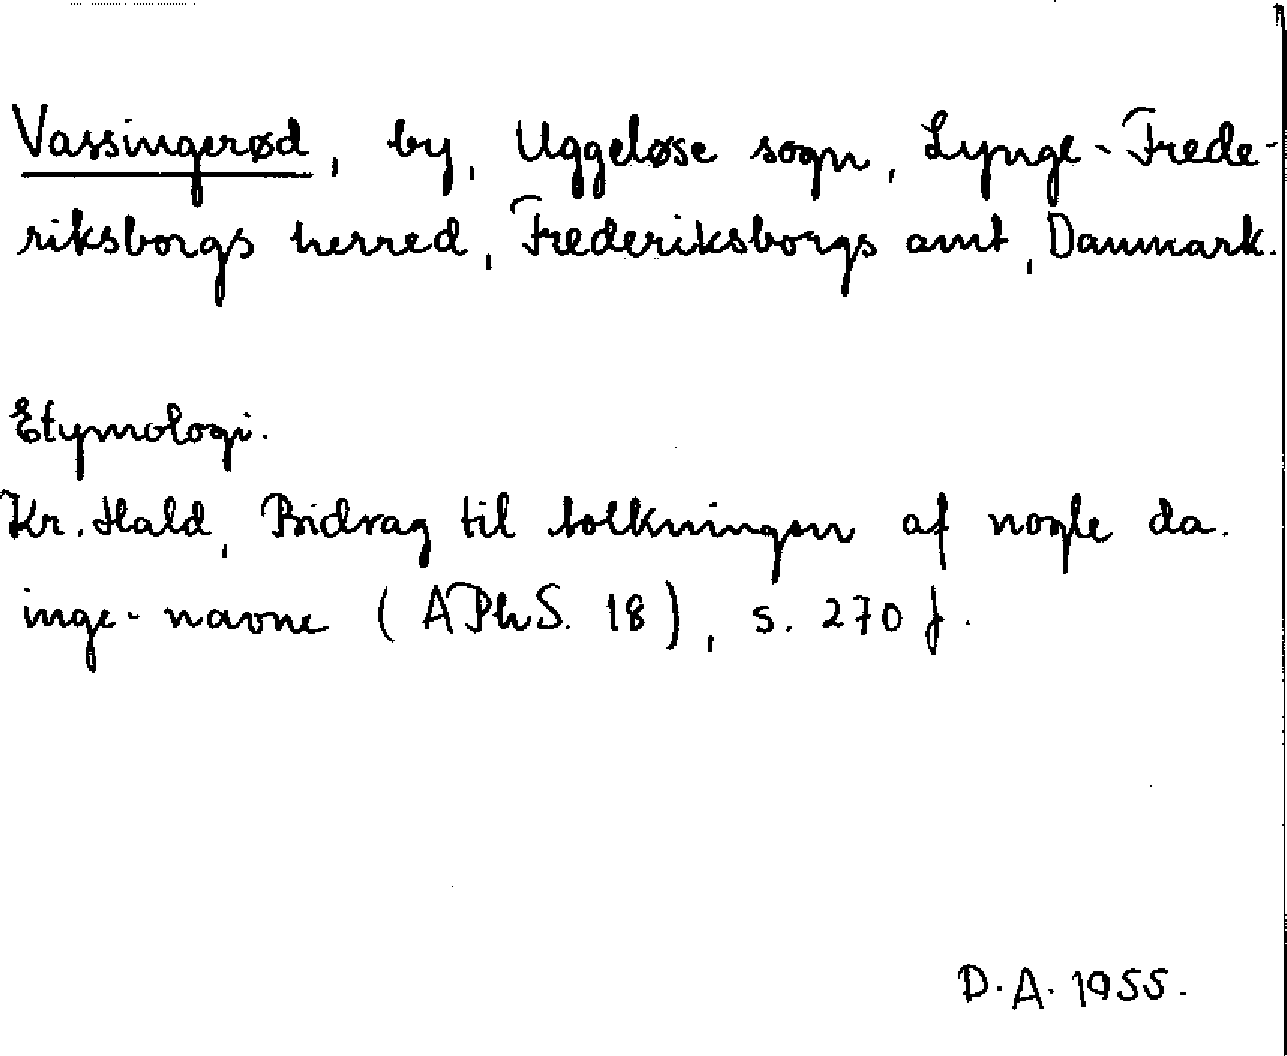 Vassingerød, by, Uggeløse sogn, Lynge-Frede-
riksborgs herred, Frederiksborgs amt, Danmark.
Etymologi.
Kr. Hald, Bidrag til tolkningen af nogle da.
inge-navne (APhS. 18), s. 270 f.
D.A. 1955.